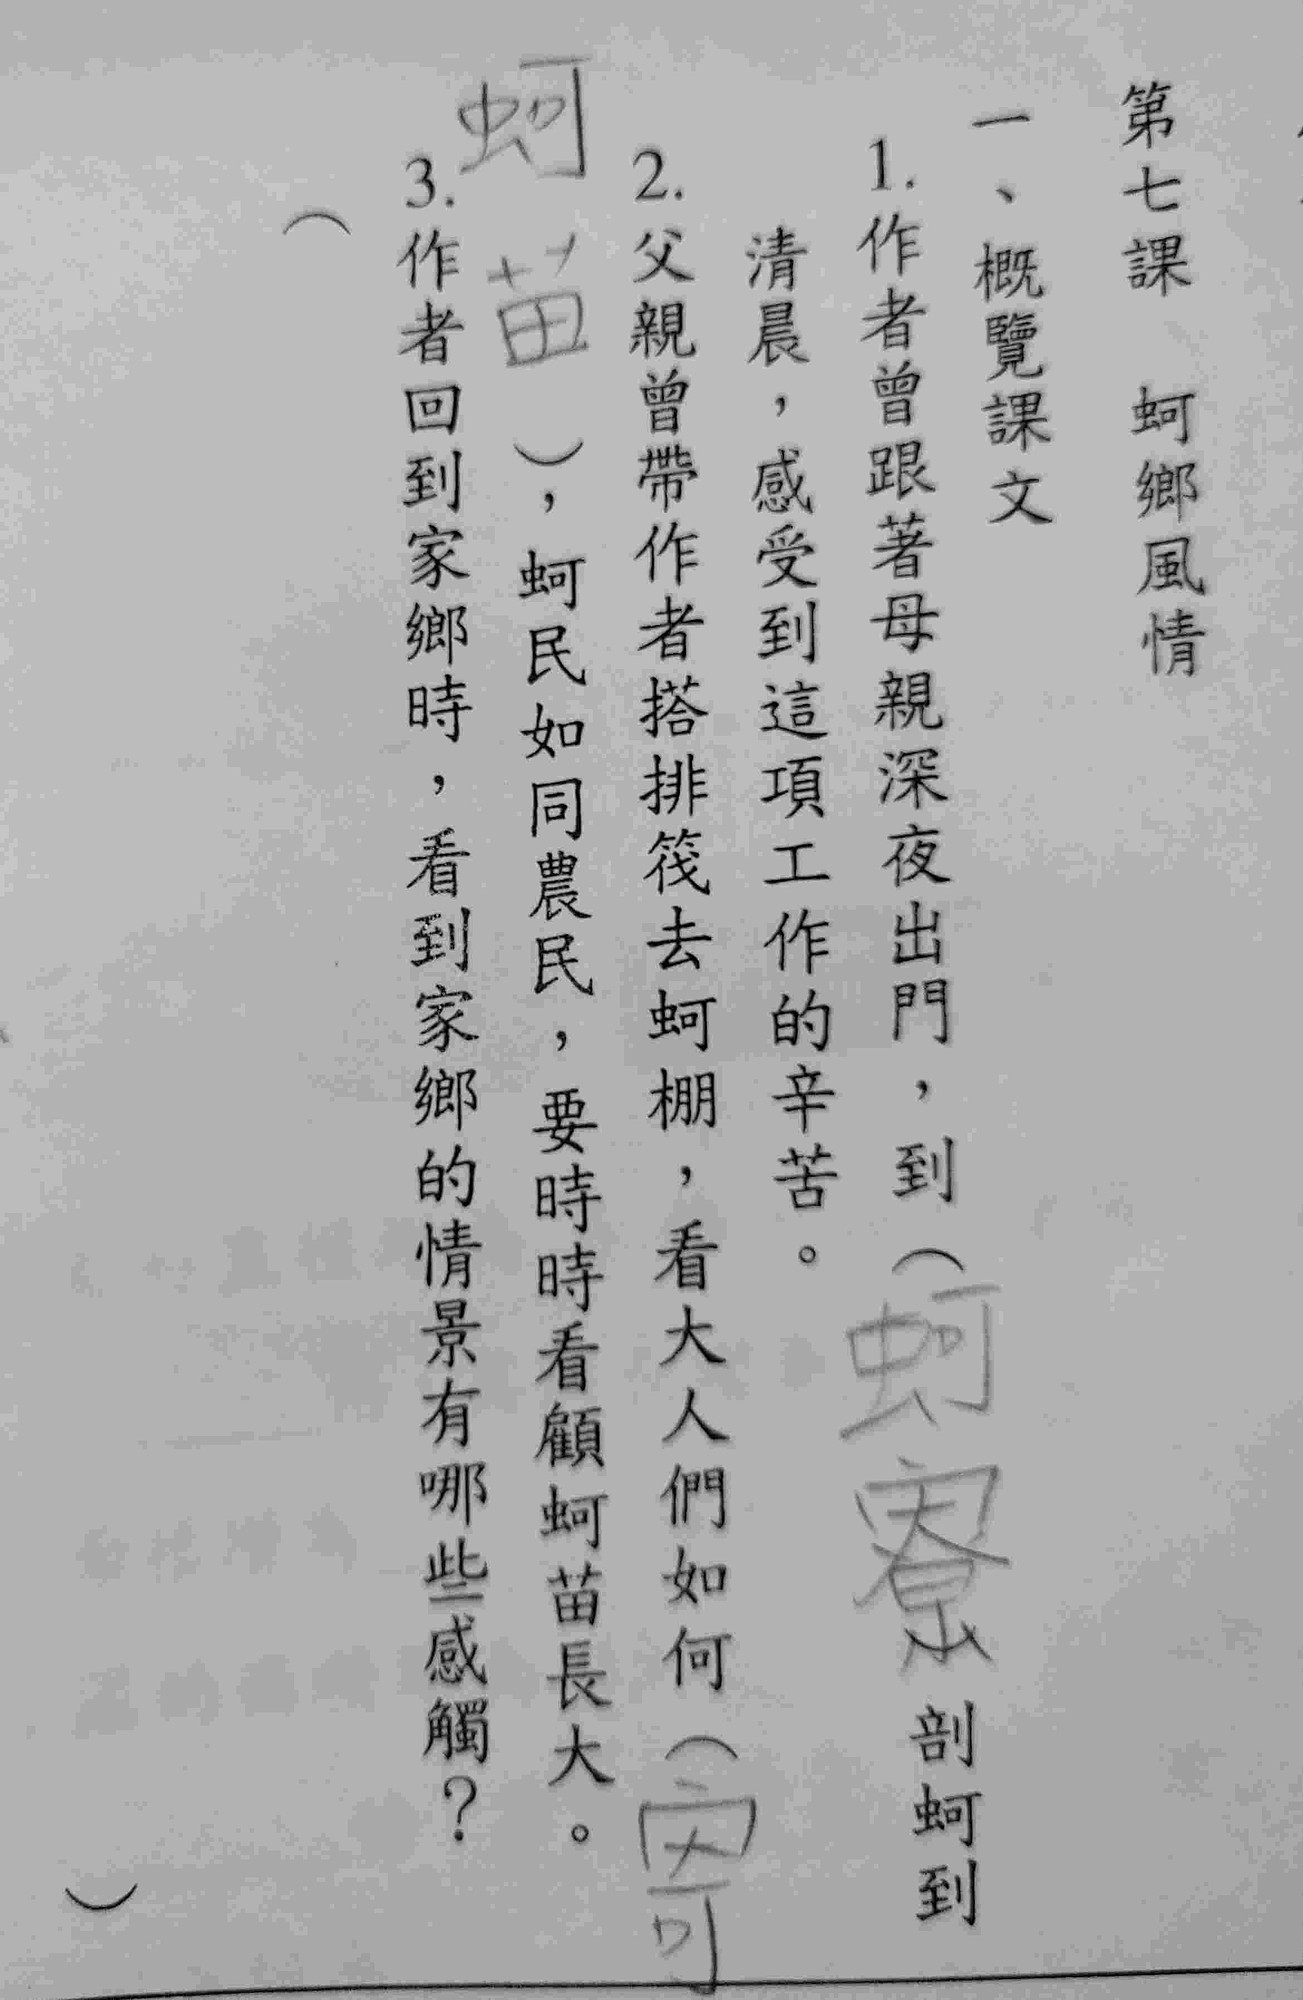 第七課 蚵鄉風情
一、概覽課文
1.作者曾跟著母親深夜出門,到(蚵寮剖蚵到
清晨,感受到這項工作的辛苦。
2.父親曾帶作者搭排筏去蚵棚,看大人們如何(寄
蚵苗),蚵民如同農民,要時時看顧蚵苗長大。
3.作者回到家鄉時,看到家鄉的情景有哪些感觸?
( )